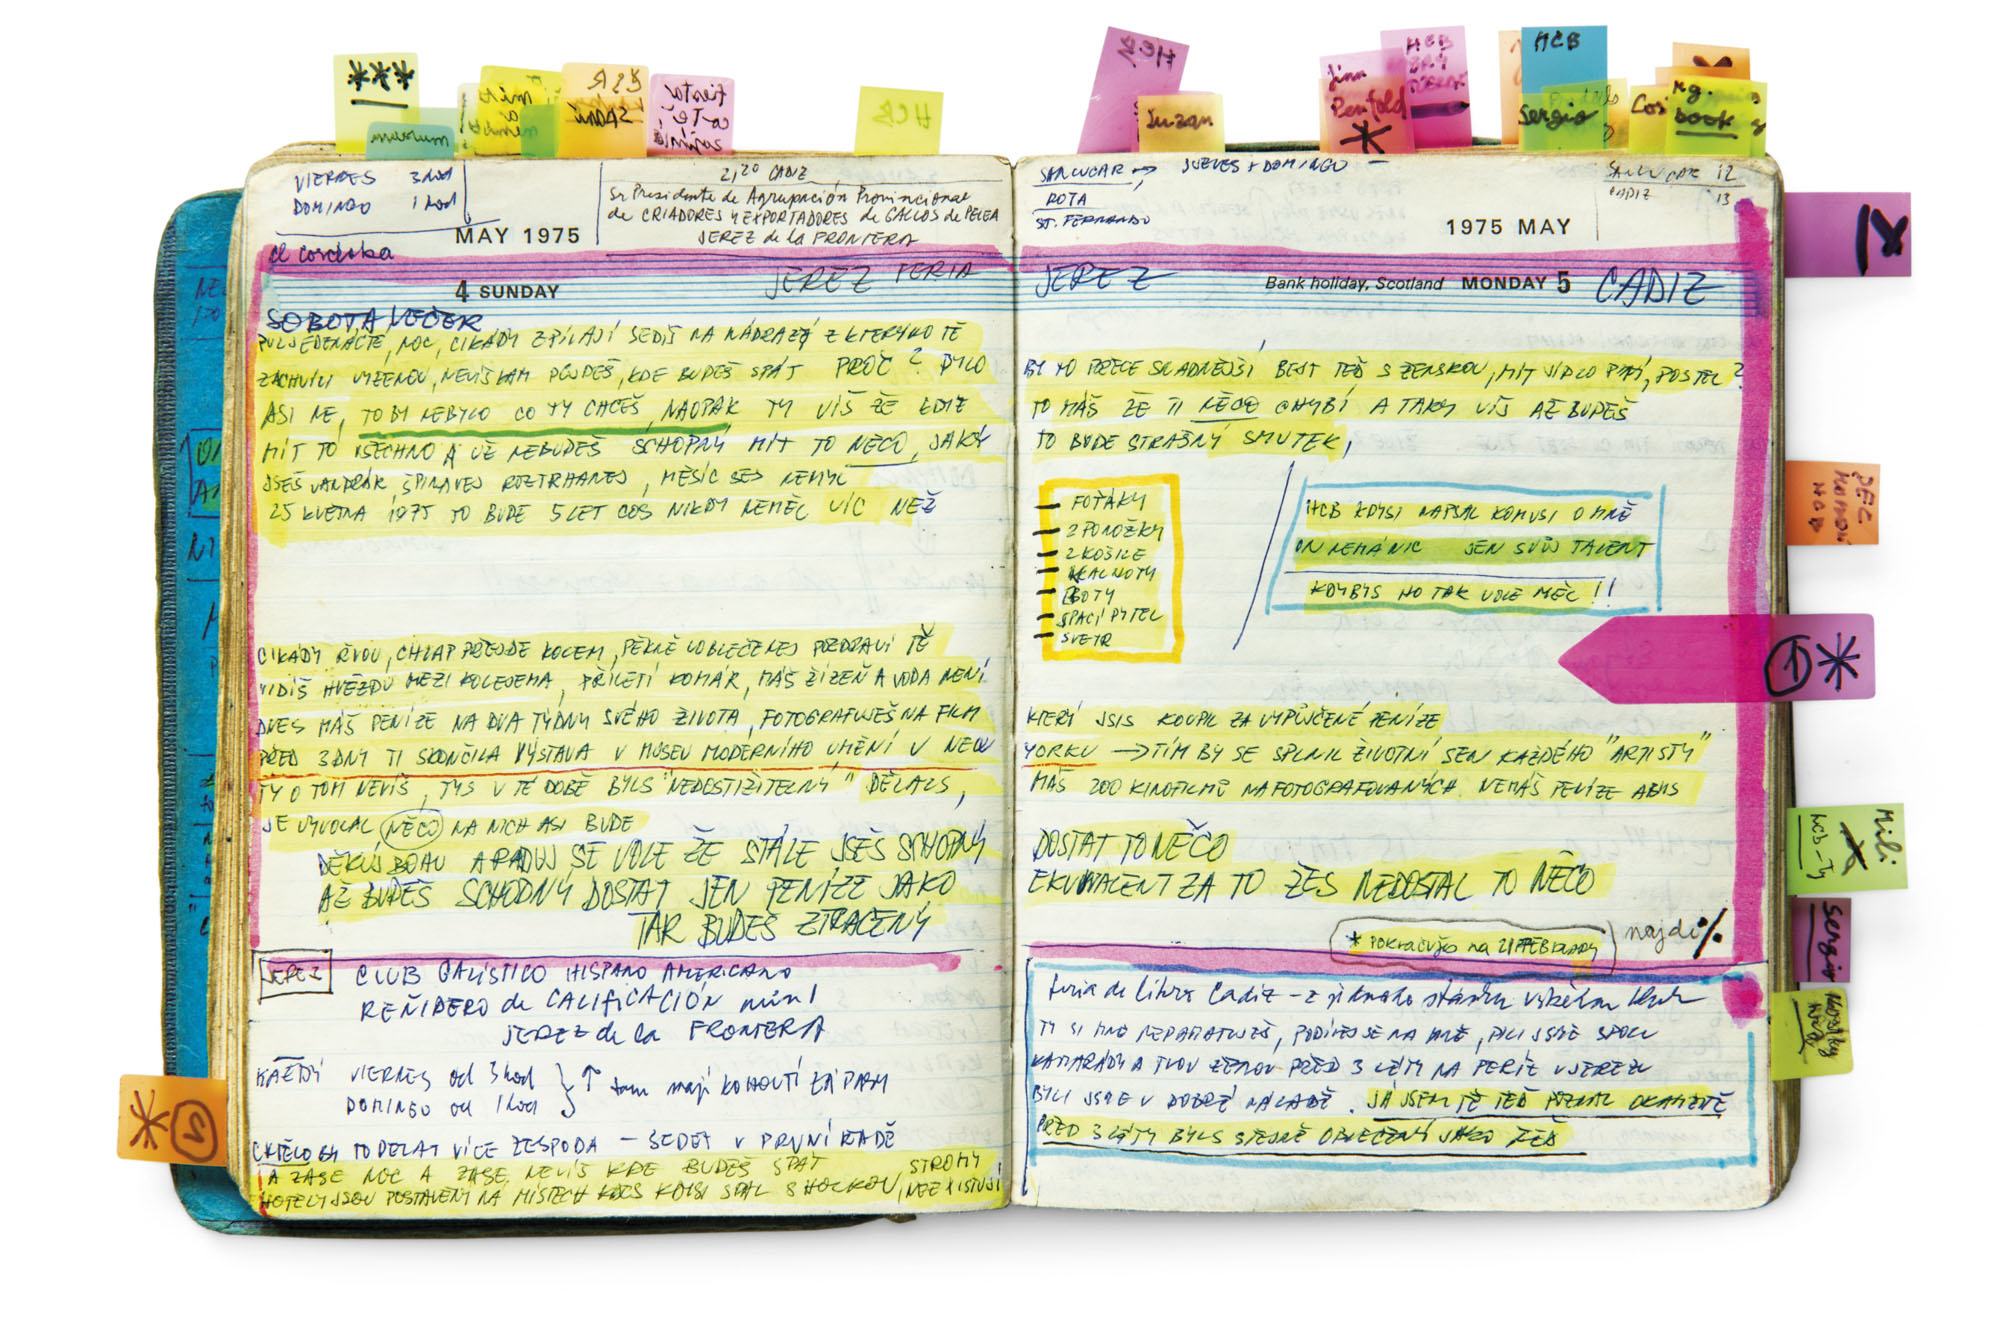 ***
HCB
Suzan
HCB
Sergio
book
VIERNES 3 hod
DOMINGO 1 hod
MAY 1975
21,20 CADIZ
Sr Presidente de Agrupación Provincional
de CRIADORES Y EXPORTADORES de GALLOS de PELEA
JEREZ de la FRONTERA
El cordoba
4 SUNDAY
JEREZ FERIA
SOBOTA VEČER
PUL JEDENÁCTÉ, NOC, CIKÁDY ZPÍVAJÍ SEDÍŠ NA NÁDRAŽÍ Z KTERÝHO TĚ
ZACHVILI VYŽENOU, NEVÍŠ KAM PŮJDEŠ, KDE BUDEŠ SPÁT PROČ? BYLO
ASI NE, TO BY NEBYLO CO TY CHCEŠ, NAOPAK TY VÍŠ ŽE KDYŽ
MÍT TO VŠECHNO A UŽ NEBUDEŠ SCHOPNÝ MÍT TO NĚCO, JAKÝ
JSEŠ VANDRÁK ŠPINAVEJ ROZTRHANEJ, MĚSÍC SES NEMYL
25 KVĚTNA 1975 TO BUDE 5 LET COS NIKDY NEMĚL VÍC NEŽ
CIKÁDY ŘVOU, CHLAP PŘEJDE KOLEM, PĚKNĚ VOBLEČENEJ POZDRAVÍ TĚ
VIDÍŠ HVĚZDU MEZI KOLEJEMA, PŘILETÍ KOMÁR, MÁŠ ŽÍZEŇ A VODA NENÍ
DNES MÁŠ PENÍZE NA DVA TÝDNY SVÉHO ŽIVOTA, FOTOGRAFUJEŠ NA FILM
PŘED 3 DNY TI SKONČILA VÝSTAVA V MUSEU MODERNÍHO UMĚNÍ V NEW
TY O TOM NEVÍŠ, TYS V TÉ DOBĚ BYLS "NEDOSTIŽITELNÝ" DĚLALS,
JE VYVOLAL NĚCO NA NICH ASI BUDE
DĚKUJ BOHU A RADUJ SE VOLE ŽE STÁLE JSEŠ SCHOPNÝ
AŽ BUDEŠ SCHODNÝ DOSTAT JEN PENÍZE JAKO
TAK BUDEŠ ZTRACENÝ
JEREZ
CLUB GALÍSTICO HISPANO AMERICANO
REÑIDERO de CALIFICACIÓN
JEREZ de la FRONTERA
KAŽDÝ VIERNES od 3 hod
DOMINGO od 1 hod
tam mají KOHOUTÍ ZÁPASY
CHTĚLO BY TO DĚLAT VÍCE ZESPODA – SEDĚT V PRVNÍ ŘADĚ
A ZASE NOC A ZASE NEVÍŠ KDE BUDEŠ SPÁT STROMY
HOTELY JSOU POSTAVENY NA MÍSTECH KDES KDYSI SPAL S HOLKOU, NEEXISTUJÍ
SANLUCAR → JUEVES + DOMINGO –
ROTA
ST. FERNANDO
SANLUCAR 12
CADIZ 13
1975 MAY
JEREZ
Bank holiday, Scotland MONDAY 5
CADIZ
BY TO PŘECE SNADNĚJŠÍ BEJT TEĎ S ŽENSKOU, MÍT JÍDLO PITÍ, POSTEL?
TO MÁŠ ŽE TI NĚCO CHYBÍ A TAKY VÍŠ AŽ BUDEŠ
TO BUDE STRAŠNÝ SMUTEK,
FOŤÁKY
2 PONOŽKY
2 KOŠILE
KALHOTY
BOTY
SPACÍ PYTEL
SVETR
HCB KDYSI NAPSAL KOMUSI O MNĚ
ON NEMÁ NIC JEN SVŮJ TALENT
KDYBYS HO TAK VOLE MĚL!!
KTERÝ JSIS KOUPIL ZA VYPŮJČENÉ PENÍZE
YORKU → TÍM BY SE SPLNIL ŽIVOTNÍ SEN KAŽDÉHO "ARTISTY"
MÁŠ 200 KINOFILMŮ NAFOTOGRAFOVANÝCH. NEMÁŠ PENÍZE ABYS
DOSTAT TO NĚČO
EKVIVALENT ZA TO ŽES NEDOSTAL TO NĚČO
najdi
Feria de libro Cadiz – z jednoho stánku
TY SI MNE NEPAMATUJEŠ, PODÍVEJ SE NA MNĚ, PILI JSME SPOLU
KAMARÁDY A TVOU ŽENOU PŘED 3 LÉTY NA FERIE V JEREZU
BYLI JSME V DOBRÉ NÁLADĚ. JÁ JSEM TĚ TEĎ POZNAL OKAMŽITĚ
PŘED 3 LÉTY BYLS STEJNĚ OBLEČENÝ JAKO TEĎ
1
Mili
HCB – Ty
Sergio